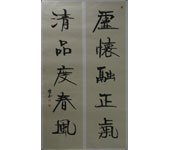 虛懷融正氣
清品度春風